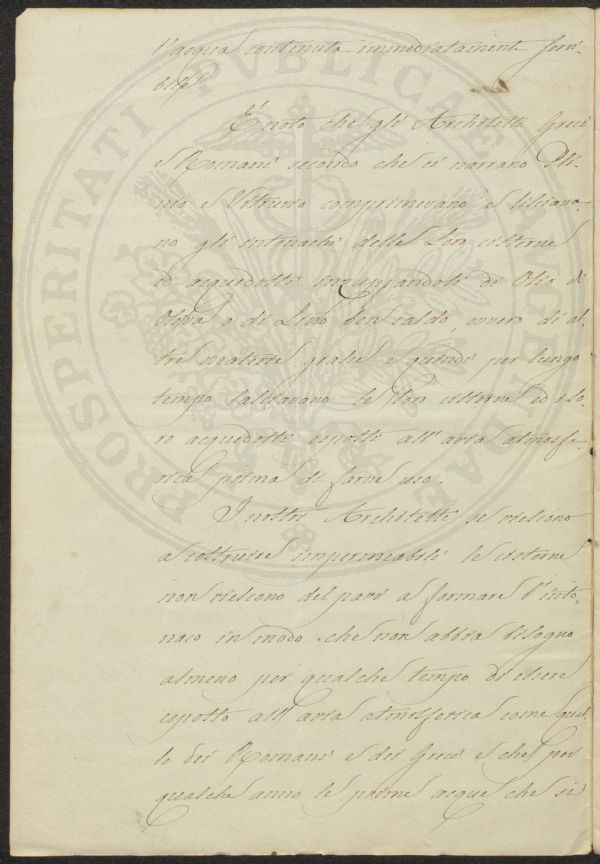 l'acqua contenuta immediatamente servi-
bile
È noto che gli Architetti Greci
e Romani secondo che ci narrano Pli-
nio e Vitruvio comprimevano e lisciava-
no gl'intonachi delle Loro cisterne
ed acquedotti inzuppandoli di Olio di
Oliva o di Lino ben caldo, ovvero di al-
tre materie grasse e quindi per lungo
tempo lasciavano le Loro cisterne ed i Lo-
ro acquedotti esposti all'aria atmosfe-
rica prima di farne uso.
I nostri Architetti se riescono
a costruire impermeabili le cisterne
non riescono del pari a formare l'into-
naco in modo che non abbia bisogno
almeno per qualche tempo di essere
esposto all'aria atmosferica come quel-
lo dei Romani e dei Greci e che per
qualche anno le prime acque che si
PROSPERITATI PUBLICAE AUGENDAE